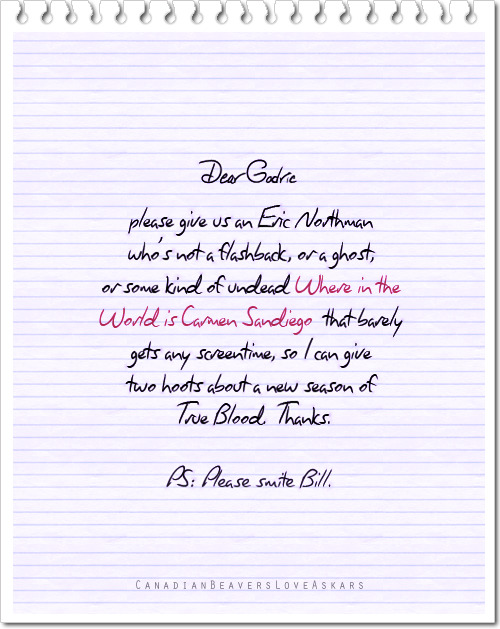 Dear Godric
please give us an Eric Northman
who's not a flashback, or a ghost,
or some kind of undead Where in the
World is Carmen Sandiego that barely
gets any screentime, so I can give
two hoots about a new season of
True Blood. Thanks.
PS: Please smite Bill.
CanadianBeaversLoveAskars